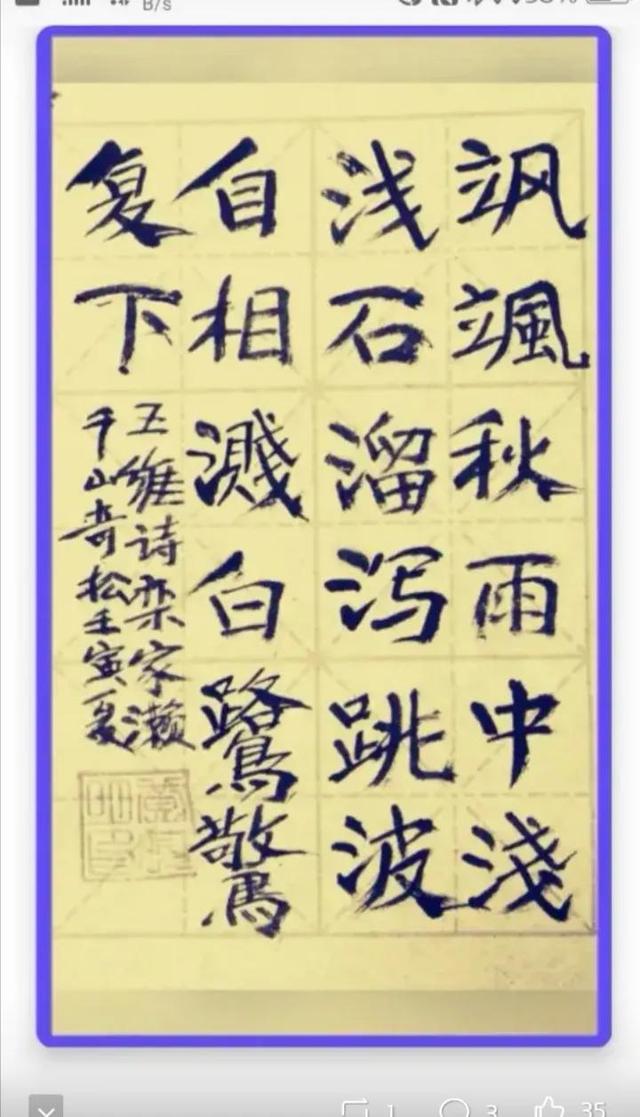 飒飒秋雨中淺
浅石溜泻跳波
自相溅白鹭驚
复下
王维诗栾家濑
千山奇松壬寅夏
B/s
1
3
35